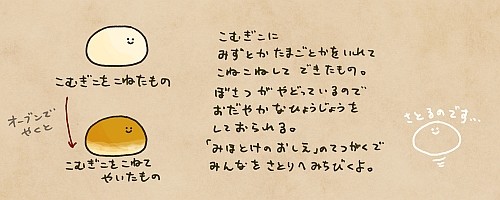 こむぎこをこねたもの
オーブンで
やくと
こむぎこをこねて
やいたもの
こむぎこに
みずとか たまごとかをいれて
こねこねして できたもの。
ぼさつ が やどっているので
おだやかなひょうじょうを
しておられる。
「みほとけのおしえ」のてつがくで
みんなを さとりへ みちびくよ。
さとるのです…